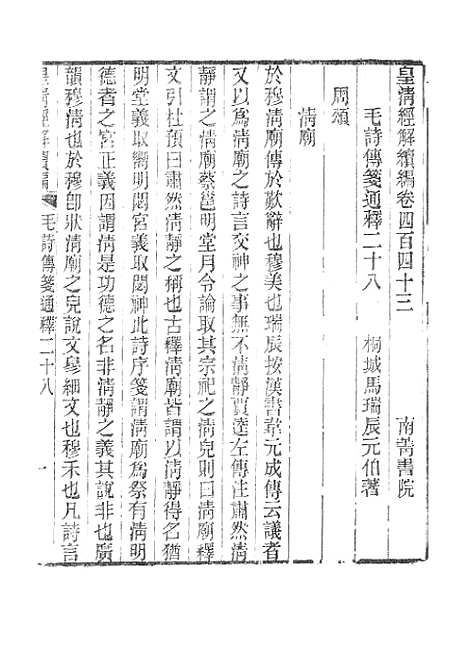 皇清經解續編卷四百四十三 南菁書院
毛詩傳箋通釋二十八 桐城馬瑞辰元伯著
周頌
清廟
於穆淸廟傳於歎辭也穆美也瑞辰按漢書韋元成傳云議者
又以爲淸廟之詩言交神之事無不淸靜賈逵左傳注肅然淸
靜謂之淸廟蔡邕明堂月令論取其宗祀之淸皃則曰淸廟釋
文引杜預曰肅然淸靜之稱也古釋淸廟皆謂以淸靜得名猶
明堂義取嚮明閟宮義取閟神此詩序箋謂淸廟爲祭有淸明
德者之宮正義因謂淸是功德之名非淸靜之義其說非也廣
韻穆淸也於穆卽狀淸廟之皃說文㣎細文也穆禾也凡詩言
皇淸經解續編 毛詩傳箋通釋二十八 一